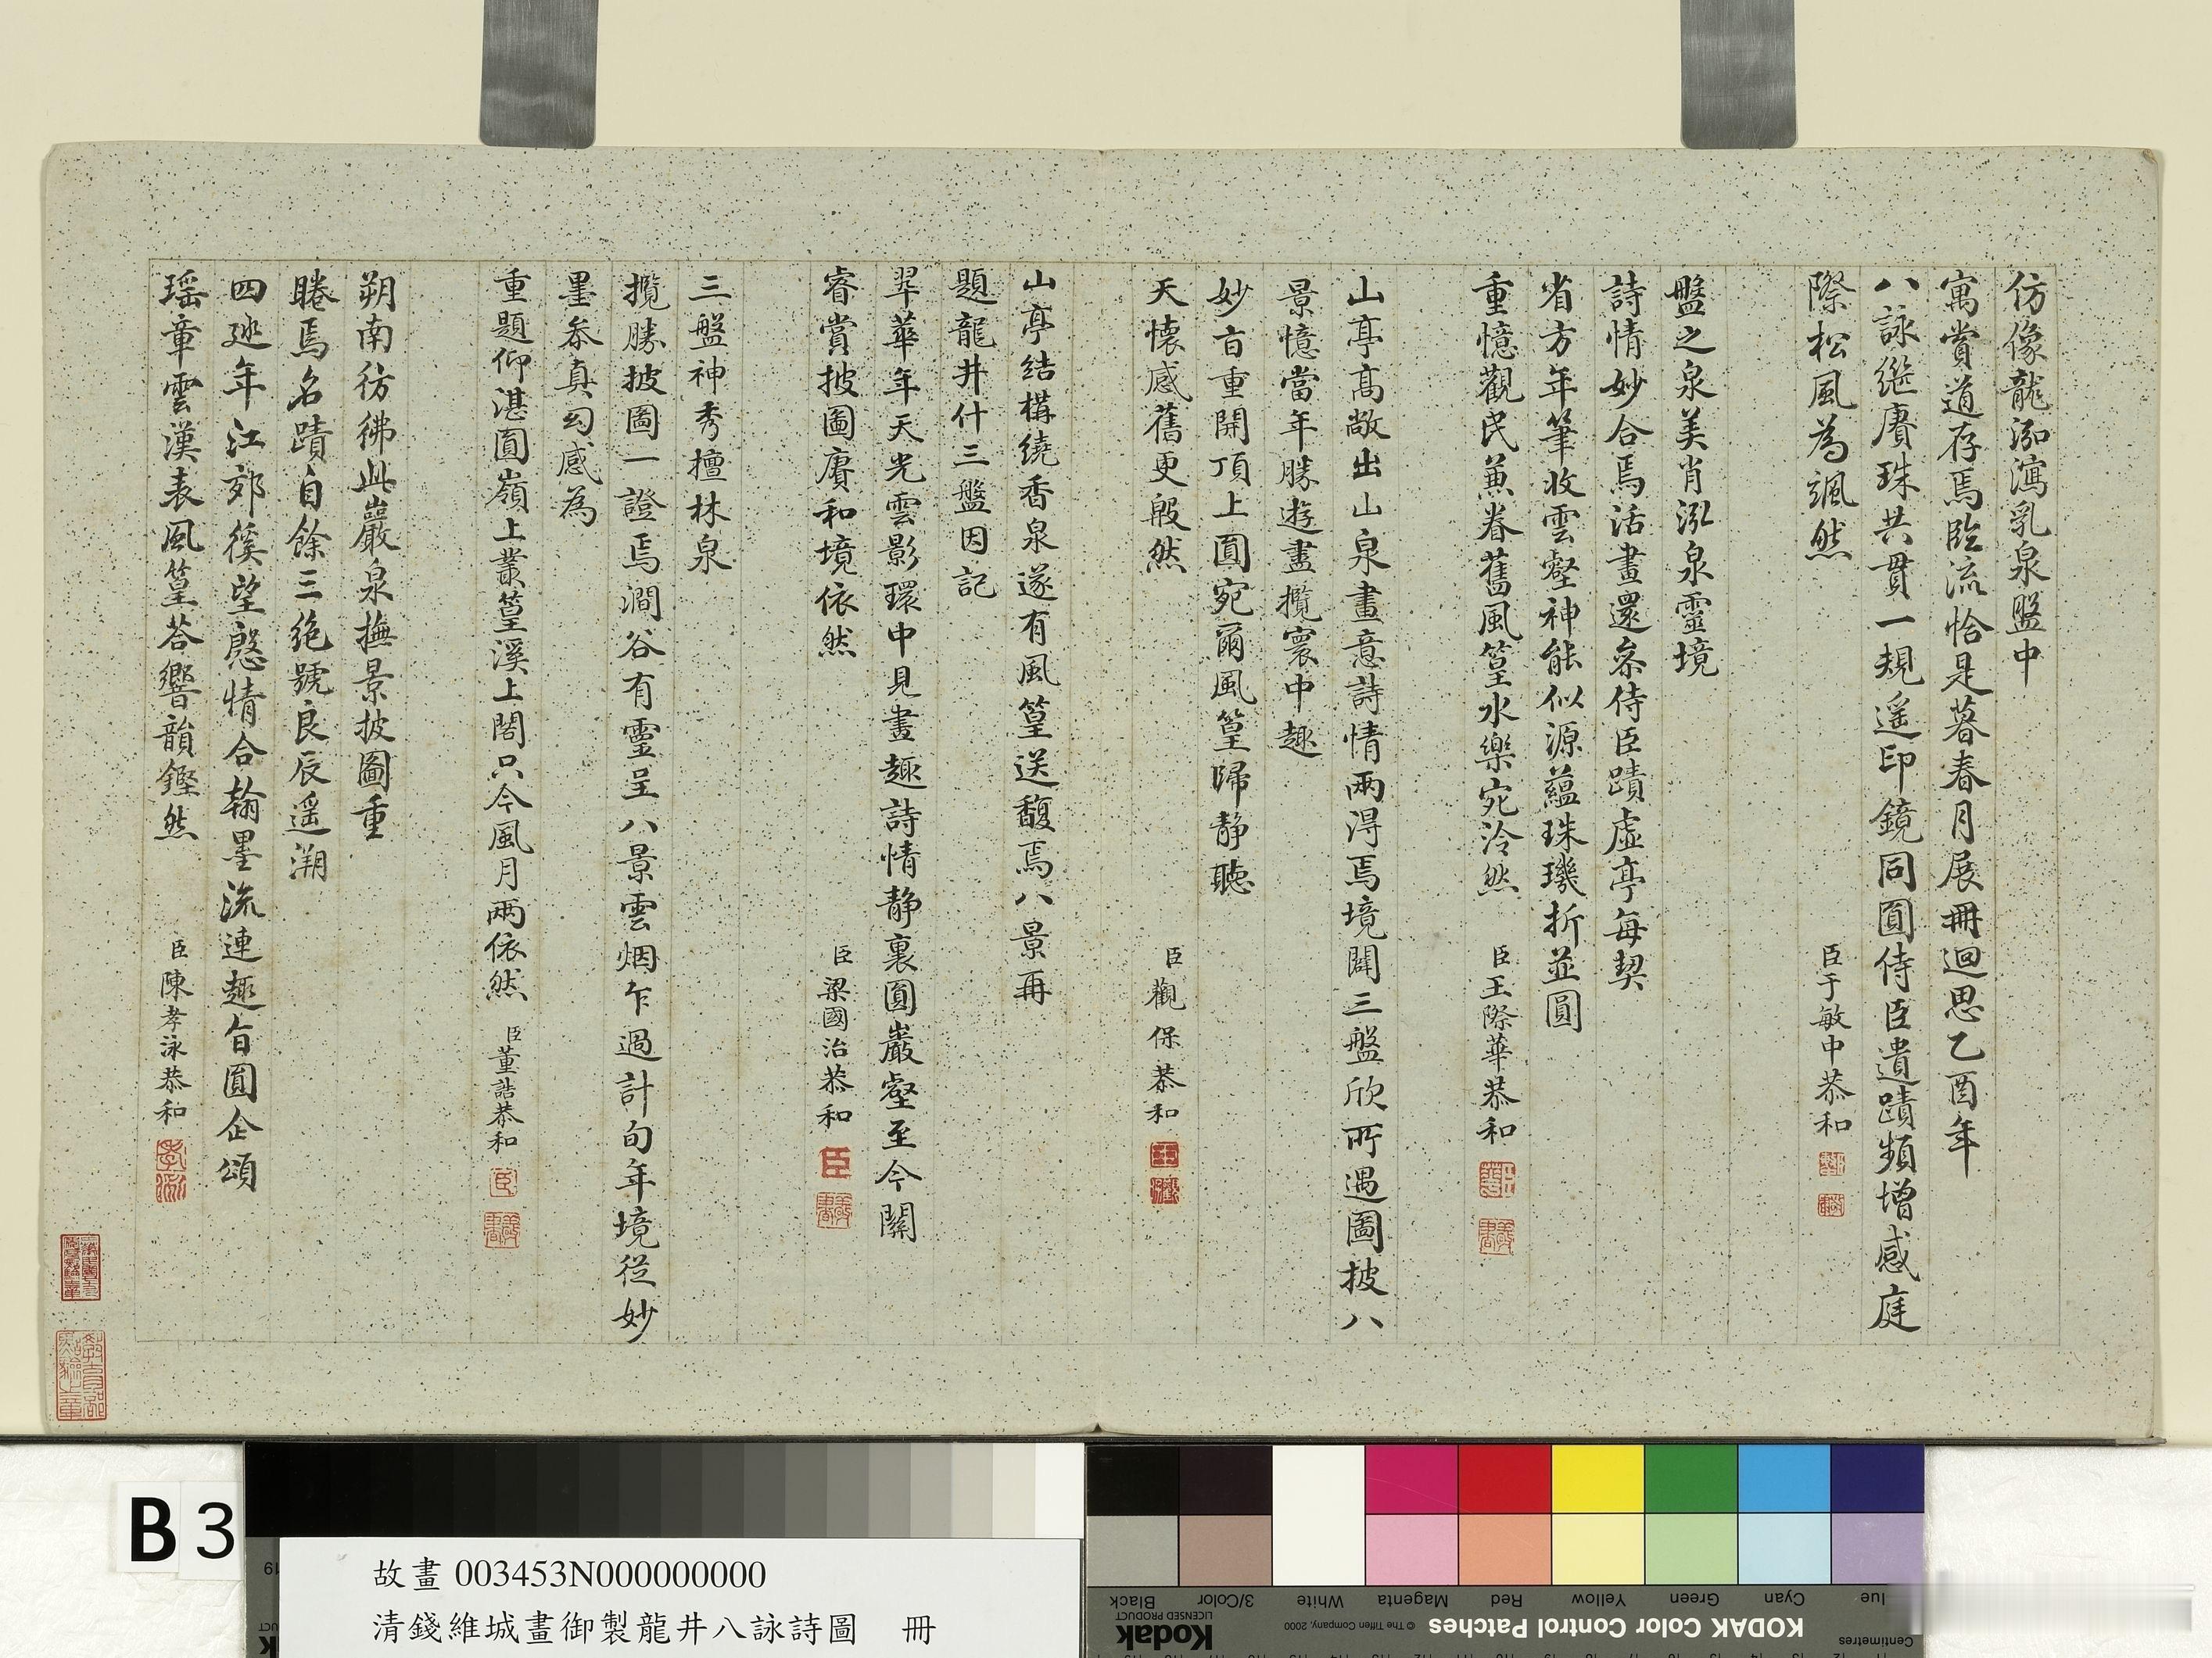 仿像龍泓瀉乳泉盤中
寓賞道存焉臨流恰是暮春月展冊迴思乙酉年
八詠繼賡珠共貫一規遥印鏡同圓侍臣遺蹟頻增感庭
際松風為颯然
臣于敏中恭和
盤之泉美肖泓泉靈境
詩情妙合焉活畫還叅侍臣蹟虛亭每契
省方年筆收雲壑神能似源蘊珠璣折並圓
重憶觀民蕙眷舊風篁水樂宛泠然
臣王際華恭和
山亭高敞出山泉畫意詩情兩得焉境闢三盤欣所遇圖披八
景憶當年勝遊盡攬寰中趣
妙旨重開頂上圓宛爾風篁歸静聽
天懷感舊更殷然
臣觀保恭和
山亭结構繞香泉遂有風篁送馥焉八景再
題龍井什三盤因記
翠華年天光雲影環中見畫趣詩情静裏圓巖壑至今關
睿賞披圖賡和境依然
臣梁國治恭和
三盤神秀擅林泉
攬勝披圖一證焉澗谷有靈呈八景雲烟乍過計旬年境從妙
墨叅真幻感為
重題仰湛圓嶺上叢篁溪上閣只今風月兩依然
臣董誥恭和
朔南彷彿此巖泉撫景披圖重
睠焉名蹟自餘三絶號良辰遥溯
四巡年江郊徯望慇情合翰墨流連趣旨圓企頌
瑶章雲漢表風篁荅響韻鏗然
臣陳孝泳恭和
B 3
故畫 003453N000000000
清錢維城畫御製龍井八詠詩圖 冊
KODAK Color Control Patches
© The Tiffen Company, 2000
Kodak
LICENSED PRODUCT
Centimetres
Cyan
Green
Yellow
Red
Magenta
White
3/Color
Black